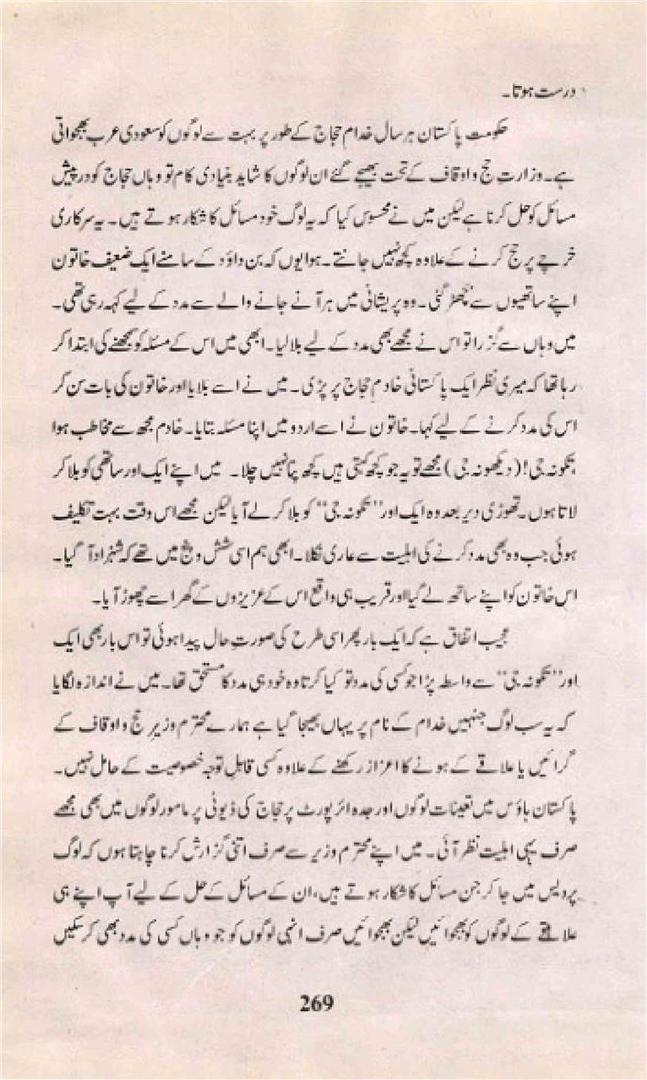 درست ہوتا۔
حکومت پاکستان ہر سال خدام حجاج کے طور پر بہت سے لوگوں کو سعودی عرب بھجواتی
ہے۔ وزارتِ حج و اوقاف کے تحت بھیجے گئے ان لوگوں کا شاید بنیادی کام تو وہاں حجاج کو درپیش
مسائل کو حل کرنا ہے لیکن میں نے محسوس کیا کہ یہ لوگ خود مسائل کا شکار ہوتے ہیں۔ یہ سرکاری
خرچے پر حج کرنے کے علاوہ کچھ نہیں جانتے۔ ہوا یوں کہ بن داؤد کے سامنے ایک ضعیف خاتون
اپنے ساتھیوں سے بچھڑ گئی۔ وہ پریشانی میں ہر آنے جانے والے سے مدد کے لیے کہہ رہی تھی۔
میں وہاں سے گزرا تو اس نے مجھے بھی مدد کے لیے بلا لیا۔ ابھی میں اس کے مسئلہ کو سمجھنے کی ابتدا کر
رہا تھا کہ میری نظر ایک پاکستانی خادمِ حجاج پر پڑی۔ میں نے اسے بلایا اور خاتون کی بات سن کر
اس کی مدد کرنے کے لیے کہا۔ خاتون نے اسے اردو میں اپنا مسئلہ بتایا۔ خادم مجھ سے مخاطب ہوا
تکونہ جی! (دیکھونہ جی) مجھے تو یہ جو کچھ کہتی ہیں کچھ پتا نہیں چلا۔ میں اپنے ایک اور ساتھی کو بلا کر
لاتا ہوں۔ تھوڑی دیر بعد وہ ایک اور ”تکونہ جی“ کو بلا کر لے آیا لیکن مجھے اس وقت بہت تکلیف
ہوئی جب وہ بھی مدد کرنے کی اہلیت سے عاری نکلا۔ ابھی ہم اسی شش و پنج میں تھے کہ شہزاد آ گیا۔
اس خاتون کو اپنے ساتھ لے گیا اور قریب ہی واقع اس کے عزیزوں کے گھر اسے چھوڑ آیا۔
عجیب اتفاق ہے کہ ایک بار پھر اسی طرح کی صورتِ حال پیدا ہوئی تو اس بار بھی ایک
اور ”تکونہ جی“ سے واسطہ پڑا جو کسی کی مدد تو کیا کرتا وہ خود ہی مدد کا مستحق تھا۔ میں نے اندازہ لگایا
کہ یہ سب لوگ جنہیں خدام کے نام پر یہاں بھیجا گیا ہے ہمارے محترم وزیر حج و اوقاف کے
گرائیں یا علاقے کے ہونے کا اعزاز رکھنے کے علاوہ کسی قابلِ توجہ خصوصیت کے حامل نہیں۔
پاکستان ہاؤس میں تعینات لوگوں اور جدہ ائرپورٹ پر حجاج کی ڈیوٹی پر مامور لوگوں میں بھی مجھے
صرف یہی اہلیت نظر آئی۔ میں اپنے محترم وزیر سے صرف اتنی گزارش کرنا چاہتا ہوں کہ لوگ
پردیس میں جا کر جن مسائل کا شکار ہوتے ہیں، ان کے مسائل کے حل کے لیے آپ اپنے ہی
علاقے کے لوگوں کو بھجوائیں لیکن بھجوائیں صرف انہی لوگوں کو جو وہاں کسی کی مدد بھی کر سکیں
269